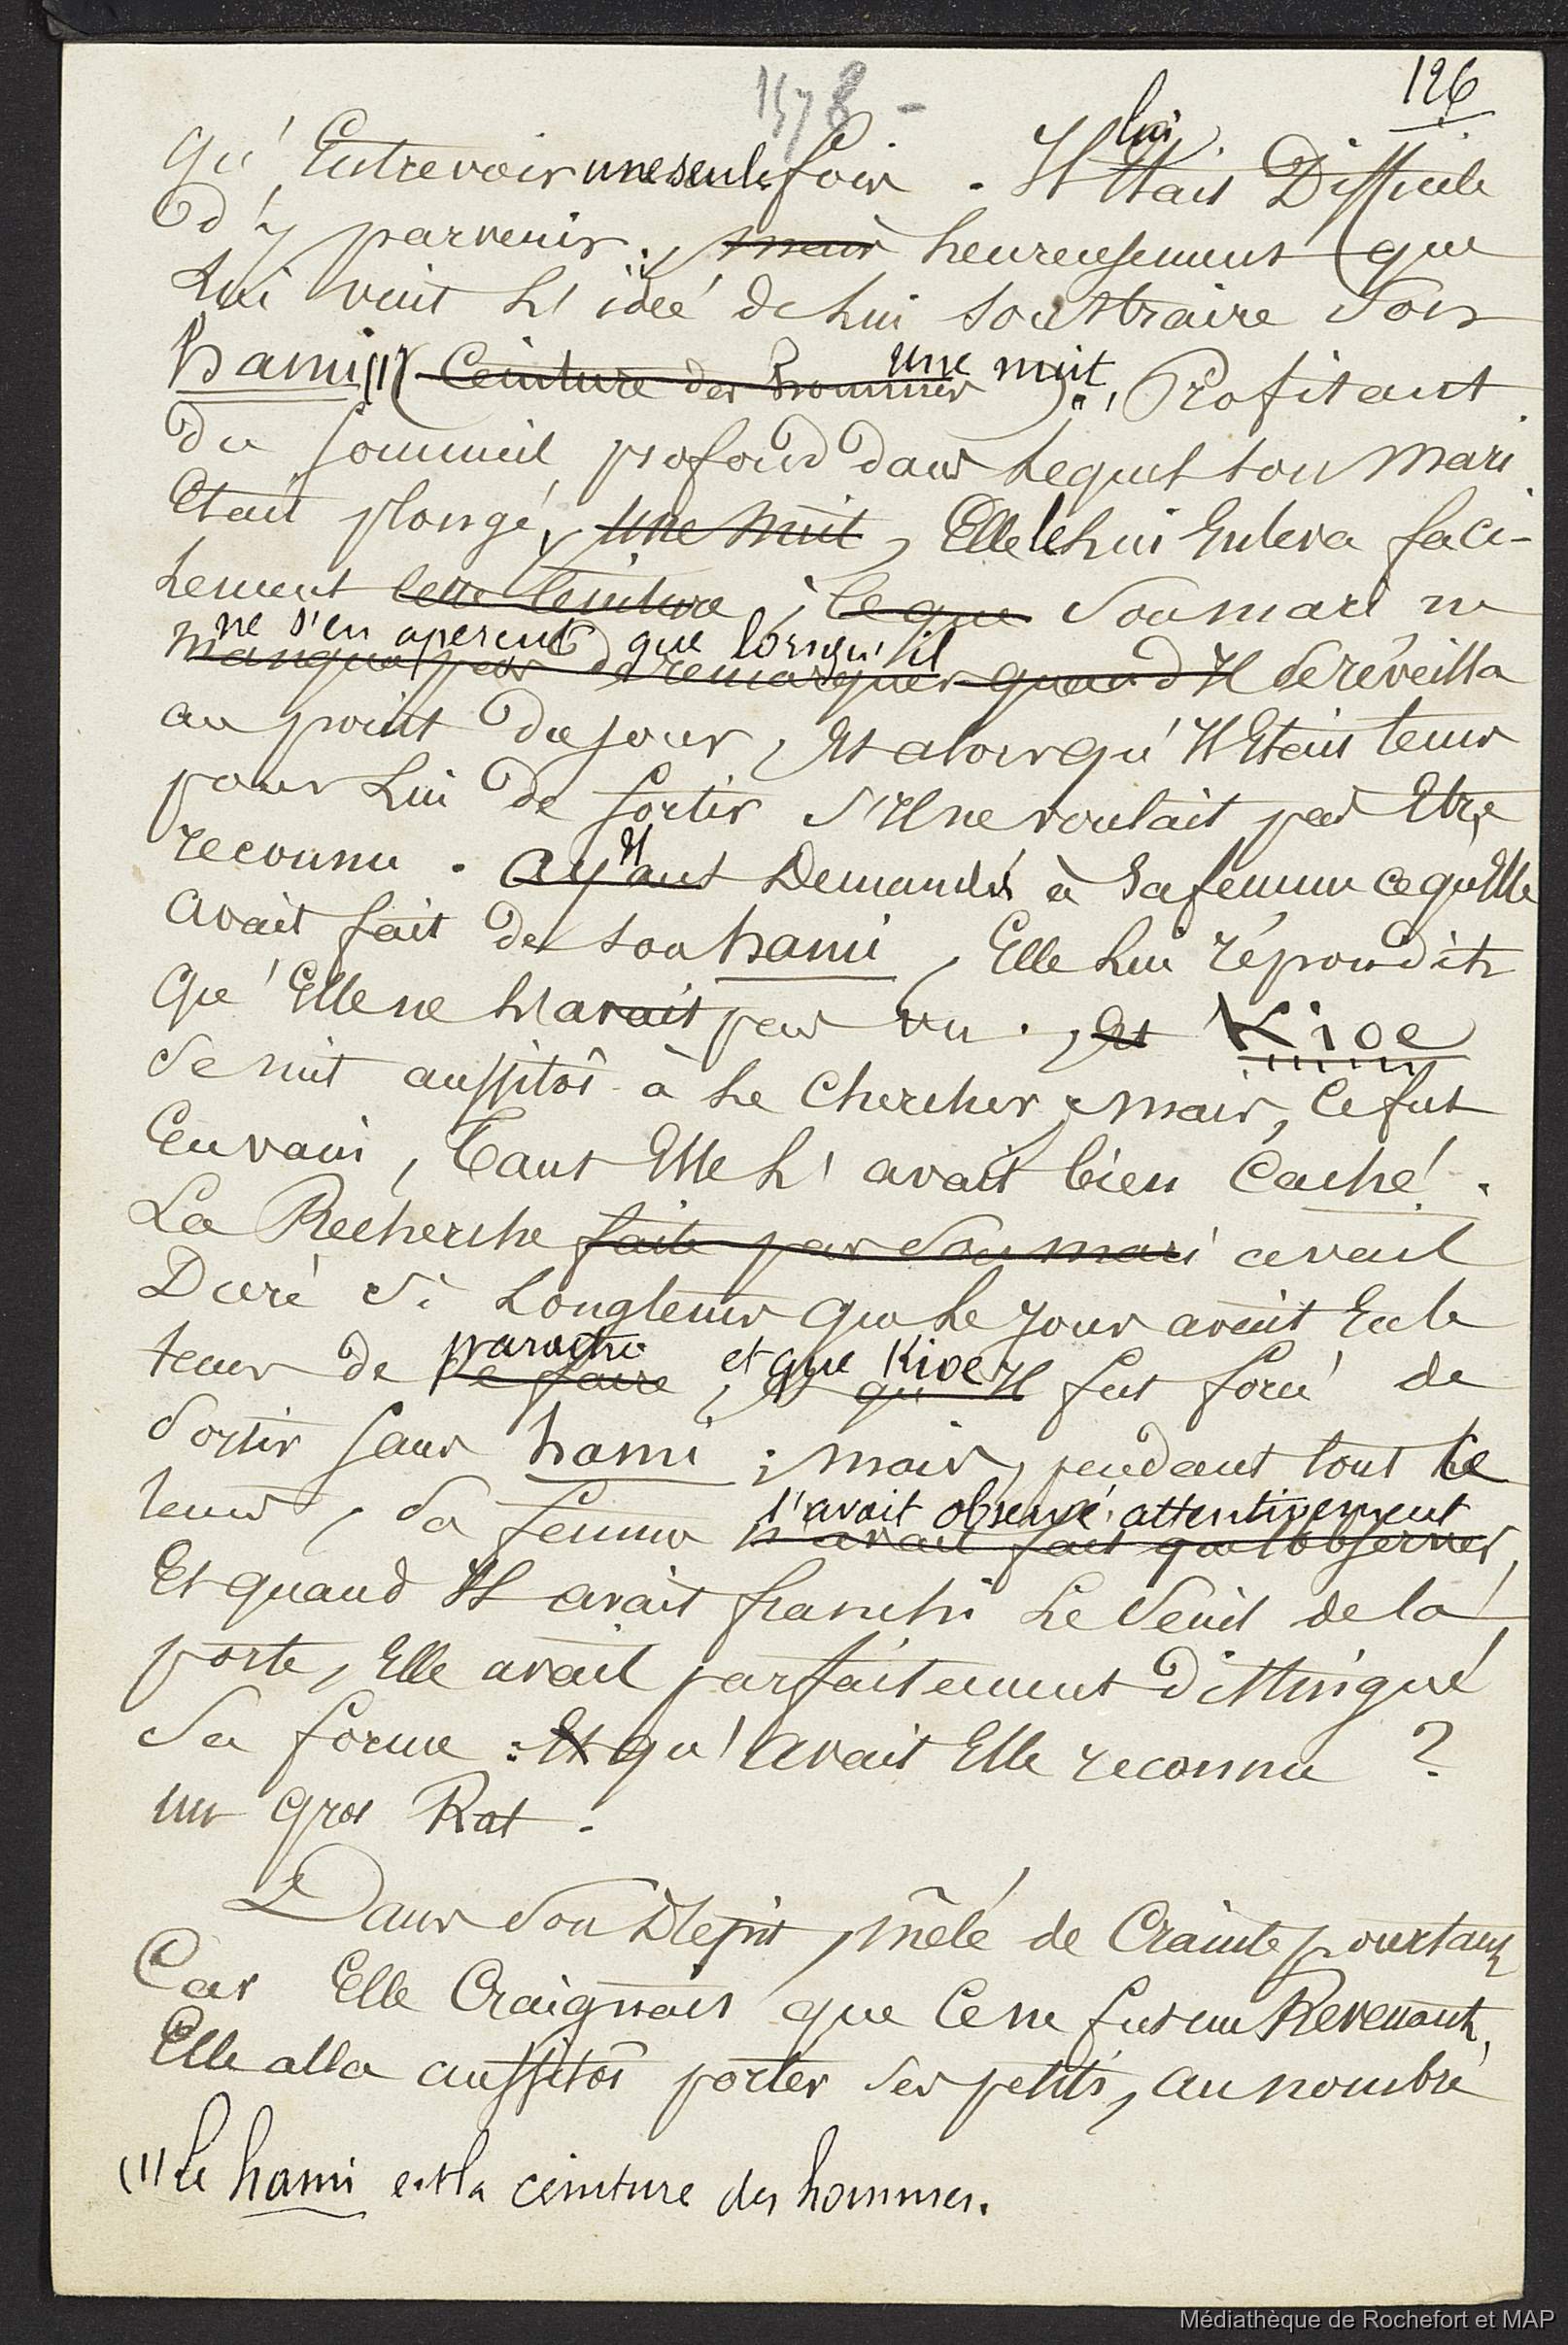 1578 -
126
lui
qu' Entrevoir une seule fois. Il Etait Difficile
d'y parvenir; mais heureusement que
Lui vint L'idée de Lui soustraire son
hami (1) (Ceinture des hommes) une nuit. Profitant
du sommeil profond dans Lequel son mari
Etait plongé, une nuit, Elle le Lui Enleva faci-
Lement cette Ceinture, ce que son mari ne
ne s'en aperçut que lorsqu'il
manqua pas de remarquer quand Il se réveilla
au point du jour, Et alors qu'Il Etait tems
pour Lui de sortir s'Il ne voulait pas Etre
Il
reconnu. Ayant Demandé à sa femme ce qu'Elle
avait fait de son hami, Elle Lui répondit
qu'Elle ne L'avait pas vu. Et Kioe
se mit aussitôt à Le Chercher, mais, Ce fut
En vain, Tant Elle L'avait bien Caché.
La Recherche faite par son mari avait
Duré si Longtems que Le jour avait Eu le
paraître et que Kioe
tems de se faire, Et qu'Il fut forcé de
sortir sans hami; mais, pendant tout Ce
l'avait observé attentivement
tems, sa femme n'avait fait que l'observer,
Et quand Il avait franchi Le seuil de la
porte, Elle avait parfaitement distingué
sa forme: Et qu'avait Elle reconnu ?
un gros Rat.
Dans son Dépit, mêlé de Crainte pourtant,
Car Elle Craignait que Ce ne fut un Revenant,
Elle alla aussitôt porter ses petits, au nombre
(1) Le hami est la ceinture des hommes.
Médiathèque de Rochefort et MAP